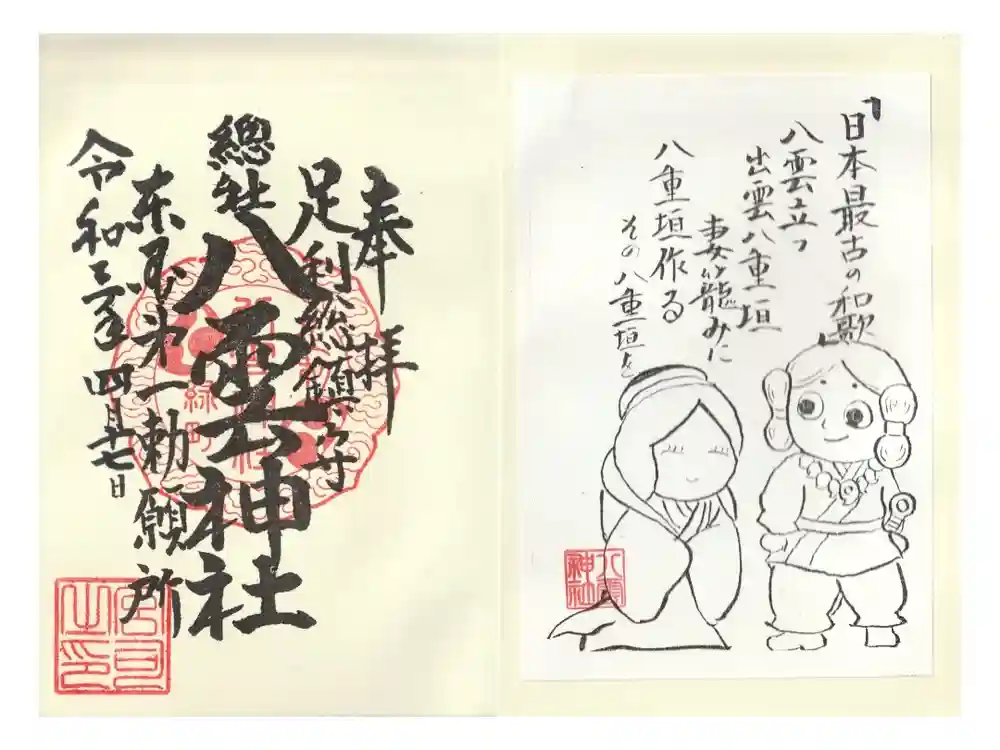 「日本最古の和歌」
八雲立つ
出雲八重垣
妻籠みに
八重垣作る
その八重垣を
奉拝
足利総鎮守
總社八雲神社
東国第一勅願所
令和三年四月十七日
緑町
八雲神社
宮司之印